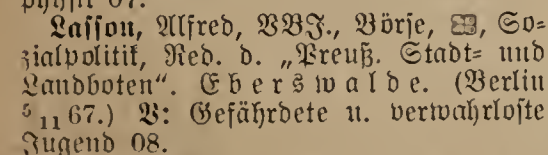 physik 07.
Lasson, Alfred, VBJ., Börje, So=
zialpolitik, Red. d. „Preuß. Stadt= und
Landboten“. Eberswalde. (Berlin
5 11 67.) V: Gefährdete u. verwahrloste
Jugend 08.